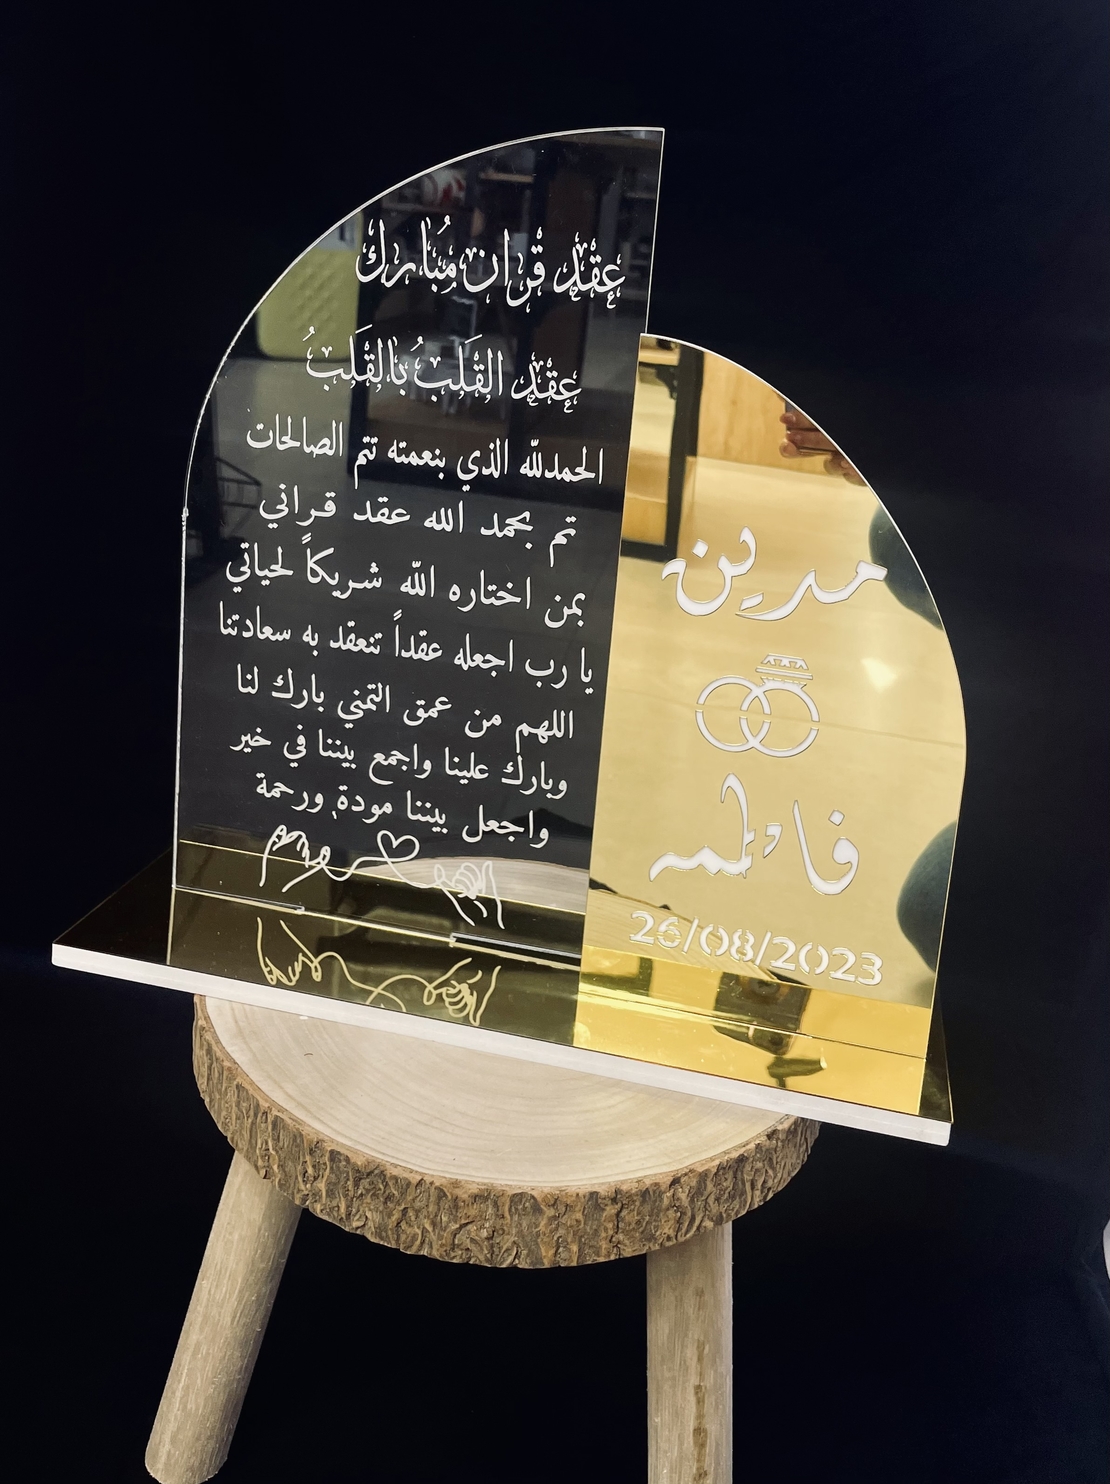 عقد قران مُبارك
عقد القَلبُ بالقَلبُ
الحمدلله الذي بنعمته تتم الصالحات
تم بحمد الله عقد قراني
بمن اختاره الله شريكاً لحياتي
يا رب اجعله عقداً تنعقد به سعادتنا
اللهم من عمق التمني بارك لنا
وبارك علينا واجمع بيننا في خير
واجعل بيننا مودة ورحمة
مدين
فاطمه
26/08/2023